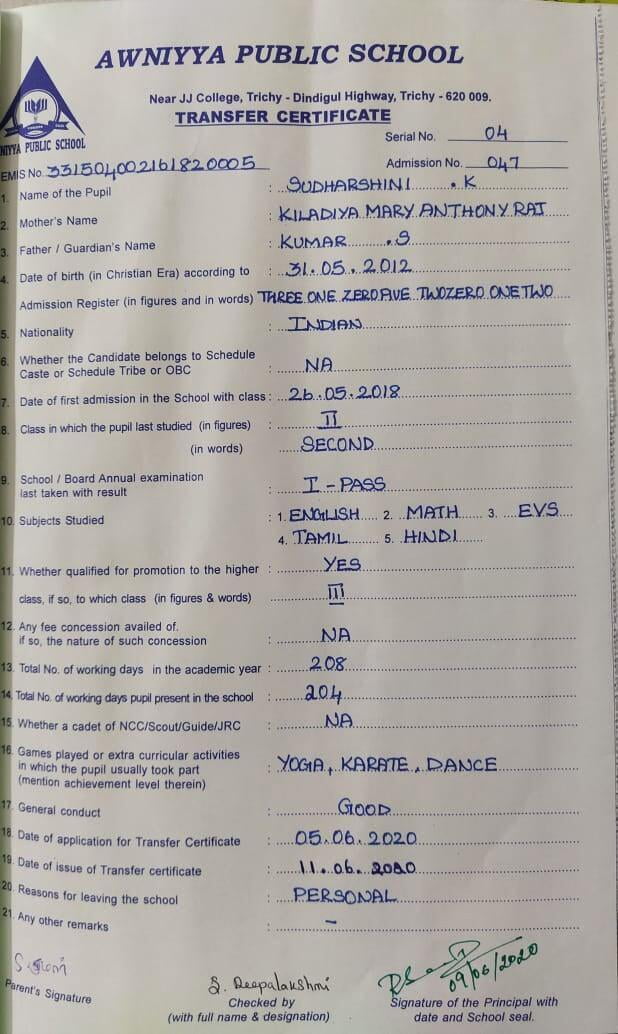 AWNIYYA PUBLIC SCHOOL
Near JJ College, Trichy - Dindigul Highway, Trichy - 620 009.
TRANSFER CERTIFICATE
NIYYA PUBLIC SCHOOL
Serial No. 04
EMIS No. 331504002161820005 Admission No. 047
1. Name of the Pupil : SUDHARSHINI . K
2. Mother's Name : KILADIYA MARY ANTHONY RAJ
3. Father / Guardian's Name : KUMAR . S
4. Date of birth (in Christian Era) according to : 31.05.2012
Admission Register (in figures and in words) THREE ONE ZERO FIVE TWO ZERO ONE TWO
5. Nationality : INDIAN
6. Whether the Candidate belongs to Schedule
Caste or Schedule Tribe or OBC : NA
7. Date of first admission in the School with class : 26.05.2018
8. Class in which the pupil last studied (in figures) : II
(in words) SECOND
9. School / Board Annual examination
last taken with result : I - PASS
10. Subjects Studied : 1. ENGLISH 2. MATH 3. EVS
4. TAMIL 5. HINDI
11. Whether qualified for promotion to the higher : YES
class, if so, to which class (in figures & words) III
12. Any fee concession availed of.
if so, the nature of such concession : NA
13. Total No. of working days in the academic year : 208
14. Total No. of working days pupil present in the school : 204
15. Whether a cadet of NCC/Scout/Guide/JRC : NA
16. Games played or extra curricular activities
in which the pupil usually took part : YOGA, KARATE, DANCE
(mention achievement level therein)
17. General conduct : GOOD
18. Date of application for Transfer Certificate : 05.06.2020
19. Date of issue of Transfer certificate : 11.06.2020
20. Reasons for leaving the school : PERSONAL
21. Any other remarks : -
09/06/2020
S. Deepalakshmi
Parent's Signature
Checked by
(with full name & designation)
Signature of the Principal with
date and School seal.